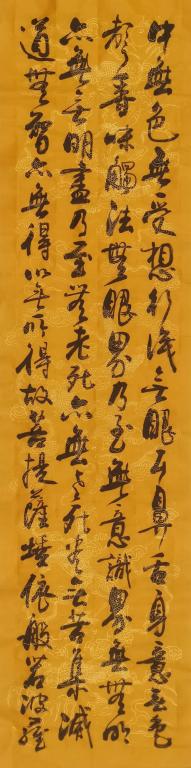 中無色無受想行識無眼耳鼻舌身意無色
聲香味觸法無眼界乃至無意識界無無明
亦無無明盡乃至無老死亦無老死盡無苦集滅
道無智亦無得以無所得故菩提薩埵依般若波羅